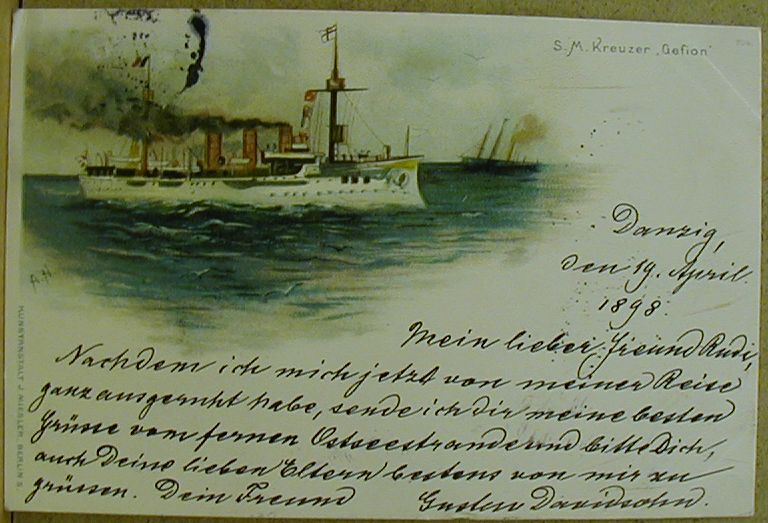 S.M. Kreuzer „Gefion“
Danzig,
den 19. April
1898.
Mein lieber Freund Rudi,
Nachdem ich mich jetzt von meiner Reise
ganz ausgeruht habe, sende ich Dir meine besten
Grüsse vom fernen Ostseestrande und bitte Dich,
auch Deine lieben Eltern bestens von mir zu
grüssen. Dein Freund Gustav Davidsohn.
KUNSTANSTALT J. MIESLER, BERLIN S.